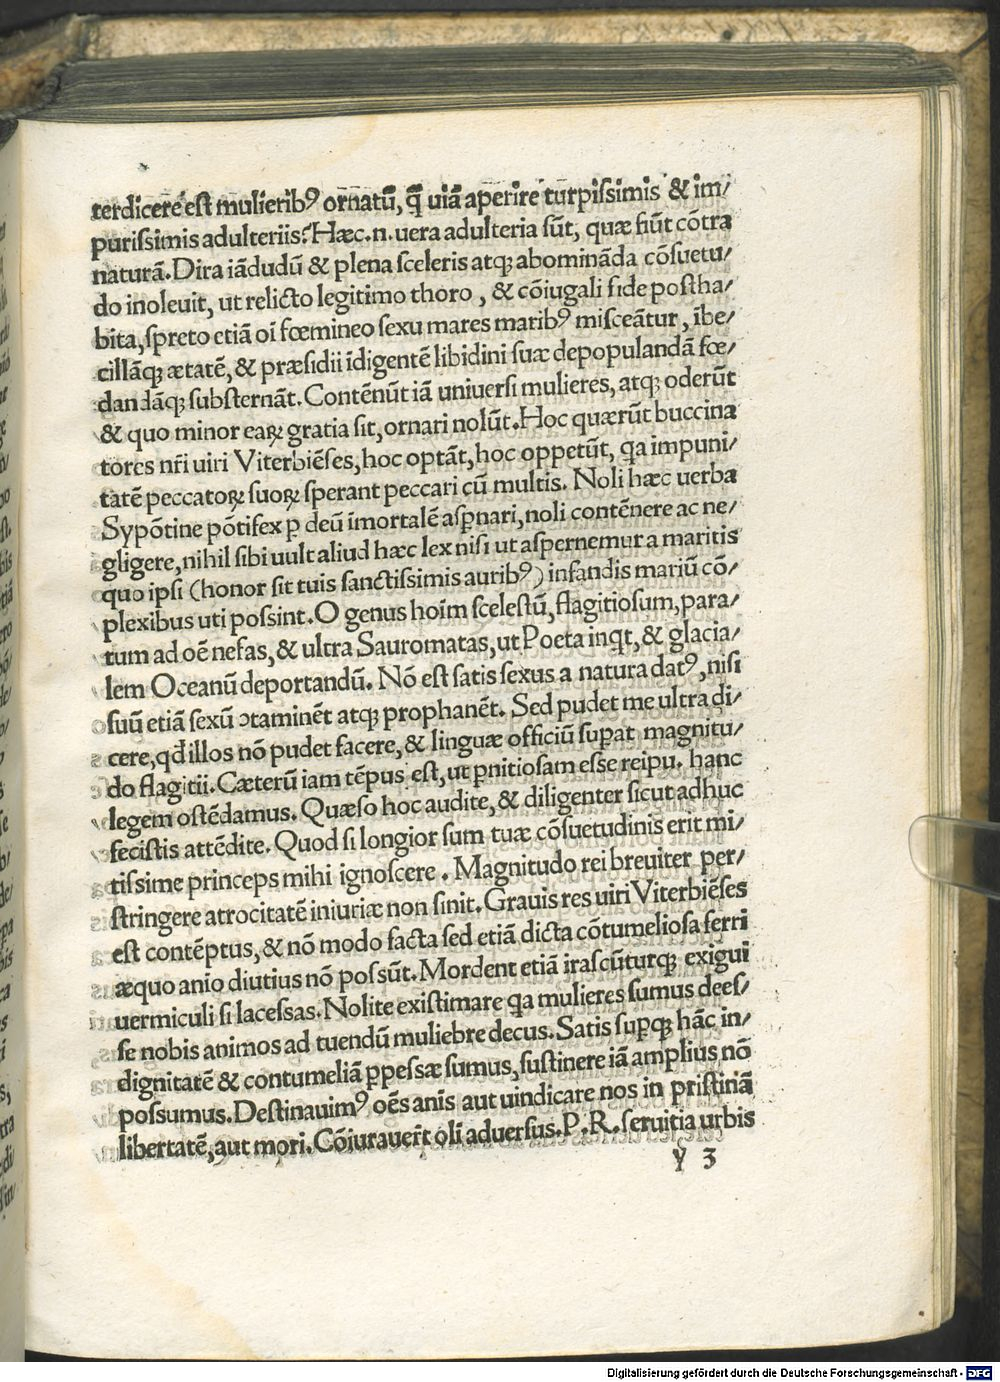 terdicere est mulierib⁹ ornatū, q̄ uiā aperire turpiſsimis & im/
puriſsimis adulteriis? Hæc.n.uera adulteria ſūt, quæ fiūt cōtra
naturā. Dira iādudū & plena ſceleris atqꝫ abomināda cōſuetu/
do inoleuit, ut relicto legitimo thoro, & cōiugali fide poſtha/
bita, ſpreto etiā oī fœmineo ſexu mares marib⁹ miſceātur, ībe/
cillāqꝫ ætatē, & præſidii īdigentē libidini ſuæ depopulandā fœ/
dandāqꝫ ſubſternāt. Contēnūt iā uniuerſi mulieres, atqꝫ oderūt
& quo minor eaꝝ gratia ſit, ornari nolūt. Hoc quærūt buccina
tores nr̄i uiri Viterbiēſes, hoc optāt, hoc oppetūt, qa impuni/
tatē peccatoꝝ ſuoꝝ ſperant peccari cū multis. Noli hæc uerba
Sypōtine pōtifex ꝑ deū īmortalē aſꝑnari, noli contēnere ac ne/
gligere, nihil ſibi uult aliud hæc lex niſi ut aſpernemur a maritis
quo ipſi (honor ſit tuis ſanctiſsimis aurib⁹) infandis mariū cō/
plexibus uti poſsint. O genus hoīm ſceleſtū, flagitioſum, para/
tum ad oē nefas, & ultra Sauromatas, ut Poeta inqt, & glacia/
lem Oceanū deportandū. Nō eſt ſatis ſexus a natura dat⁹, niſi
ſuū etiā ſexū ↄtaminēt atqꝫ prophanēt. Sed pudet me ultra di/
cere, qđ illos nō pudet facere, & linguæ officiū ſuꝑat magnitu/
do flagitii. Cæterū iam tēpus eſt, ut ꝑnitioſam eſse reipu. hanc
legem oſtēdamus. Quæſo hoc audite, & diligenter ſicut adhuc
feciſtis attēdite. Quod ſi longior ſum tuæ cōſuetudinis erit mi/
tiſsime princeps mihi ignoſcere. Magnitudo rei breuiter per/
ſtringere atrocitatē iniuriæ non ſinit. Grauis res uiri Viterbiēſes
eſt contēptus, & nō modo facta ſed etiā dicta cōtumelioſa ferri
æquo anio diutius nō poſsūt. Mordent etiā iraſcūturqꝫ exigui
uermiculi ſi laceſsas. Nolite exiſtimare qa mulieres ſumus deeſ/
ſe nobis animos ad tuendū muliebre decus. Satis ſuꝑqꝫ hāc in/
dignitatē & contumeliā ꝑpeſsæ ſumus, ſuſtinere iā amplius nō
poſsumus. Deſtinauim⁹ oēs anis aut uindicare nos in priſtinā
libertatē, aut mori. Cōiurauer̄t oli aduerſus. P.R. ſeruitia urbis
y 3
Digitalisierung gefördert durch die Deutsche Forschungsgemeinschaft - DFG